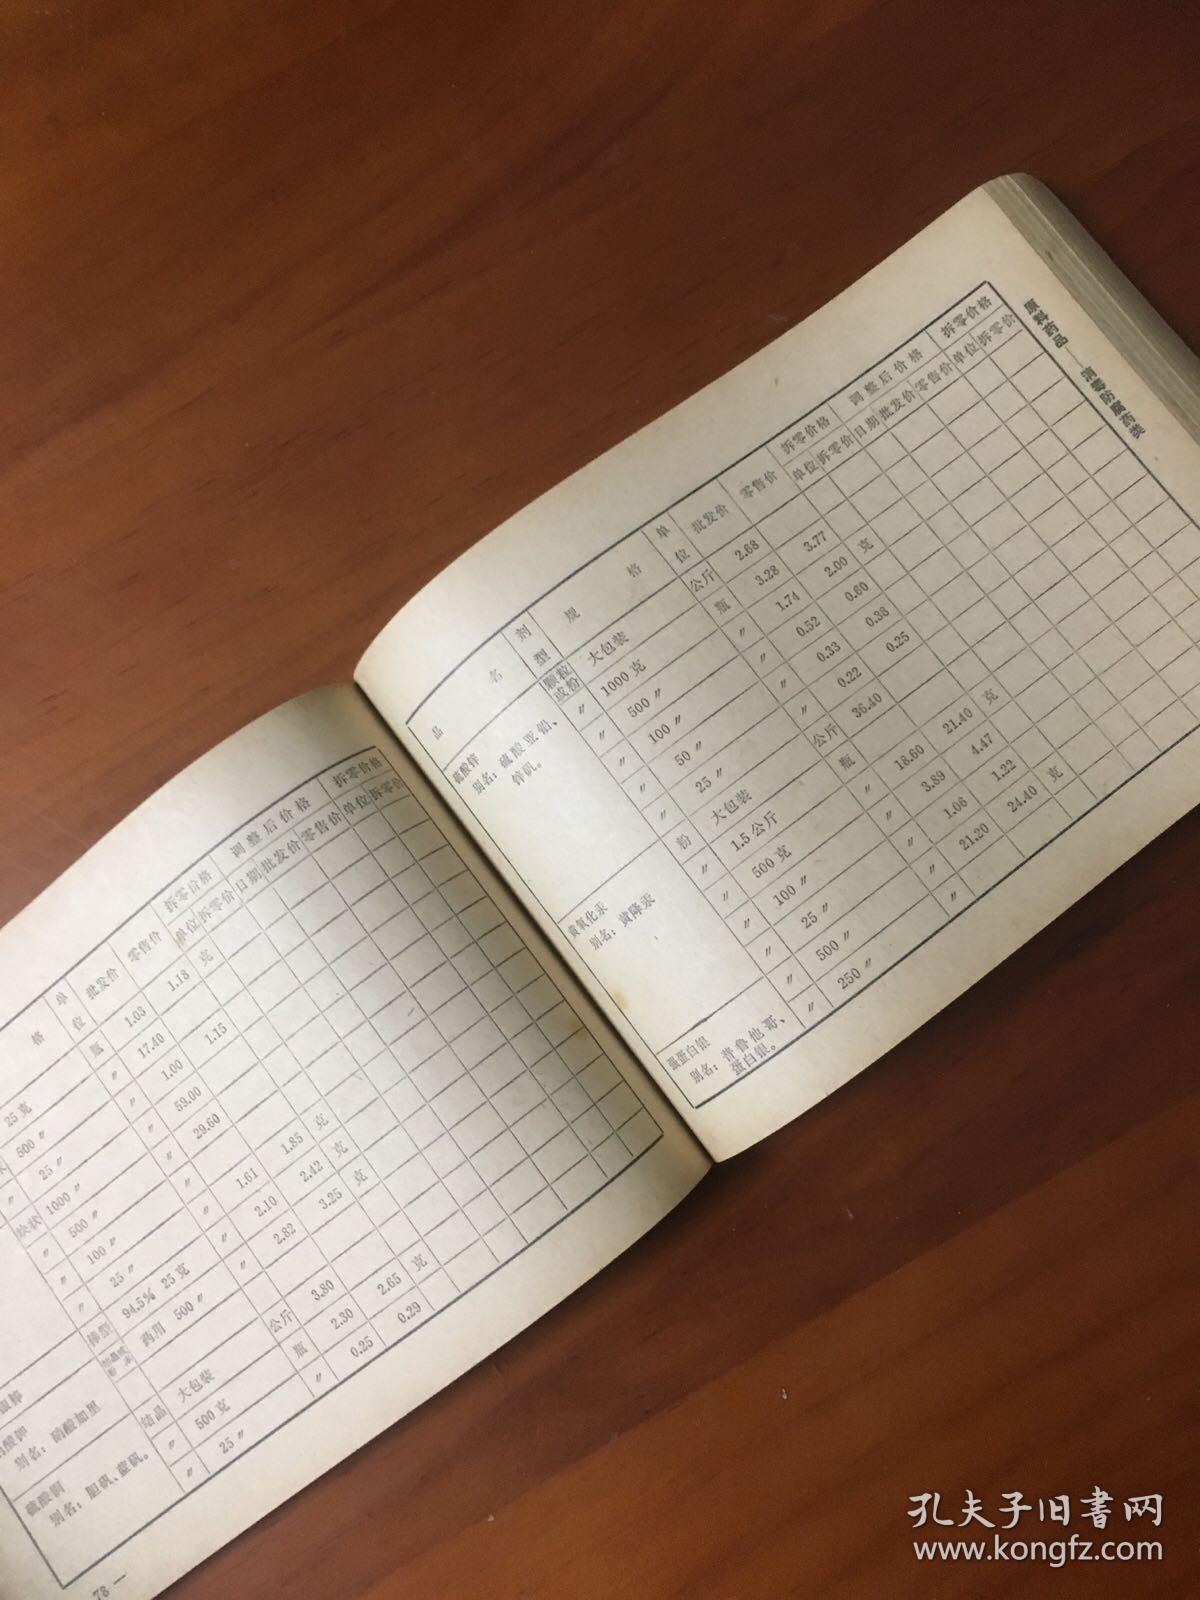 原料药品——消毒防腐药类
品 名 剂型 规 格 单位 批发价 零售价 拆零价格 调整后价格 拆零价格
单位 拆零价 日期 批发价 零售价 单位 拆零价
硫酸锌 颗粒或粉 大包装 公斤 2.68
别名：硫酸亚铅、锌矾。
〃 1000克 瓶 3.28 3.77
〃 500〃 〃 1.74 2.00 克
〃 100〃 〃 0.52 0.60
〃 50〃 〃 0.33 0.38
〃 25〃 〃 0.22 0.25
黄氧化汞 粉 大包装 公斤 36.40
别名：黄降汞
〃 1.5公斤 瓶
〃 500克 〃 18.60 21.40 克
〃 100〃 〃 3.89 4.47
〃 25〃 〃 1.06 1.22
蛋蛋白银 〃 500〃 〃 21.20 24.40 克
别名：普鲁他哥、蛋白银。
〃 250〃 〃
格 单位 批发价 零售价 拆零价格 调整后价格 拆零价格
单位 拆零价 日期 批发价 零售价 单位 拆零价
25克 瓶 1.03 1.18 克
500〃 〃 17.40
〃 25〃 〃 1.00 1.15
块状 1000〃 〃 59.00
〃 500〃 〃 29.60
〃 100〃
〃 25〃 〃 1.61 1.85 克
棒型 94.5% 25克 〃 2.10 2.42 克
药用 500〃 〃 2.82 3.25 克
别名：硝酸加里
硫酸铜 结晶 大包装 公斤 3.80
别名：胆矾、蓝矾。
〃 500克 瓶 2.30 2.65 克
〃 25〃 〃 0.25 0.29
78 —
孔夫子旧书网
www.kongfz.com